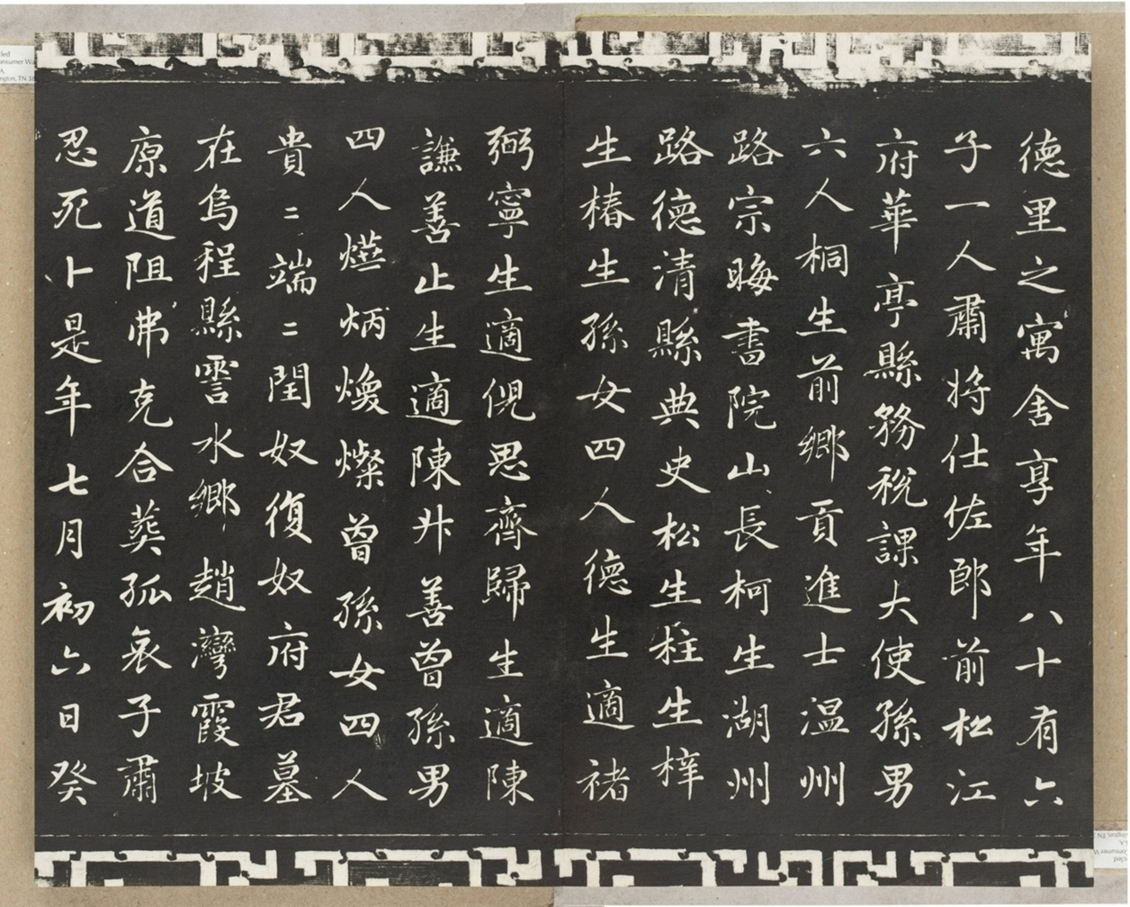 德里之寓舍享年八十有六
子一人肅將仕佐郎前松江
府華亭縣務稅課大使孫男
六人桐生前鄉貢進士温州
路宗晦書院山長柯生湖州
路德清縣典史松生程生梓
生椿生孫女四人德生適禇
弼寧生適倪思齊歸生適陳
謙善止生適陳井善曾孫男
四人燕炳煥燦曾孫女四人
貴二端二閏奴復奴府君墓
在烏程縣霅水鄉趙灣霞坡
原道阻弗克合葬孤哀子肅
忍死卜是年七月初六日癸